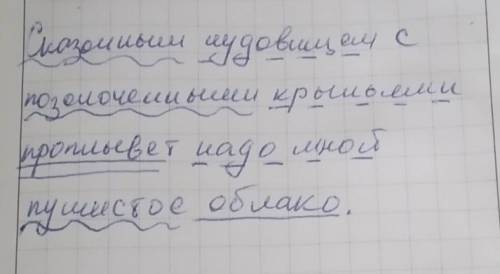 Сказочным чудовищем с
позолоченными крыльями
проплывет надо мной
пушистое облако.